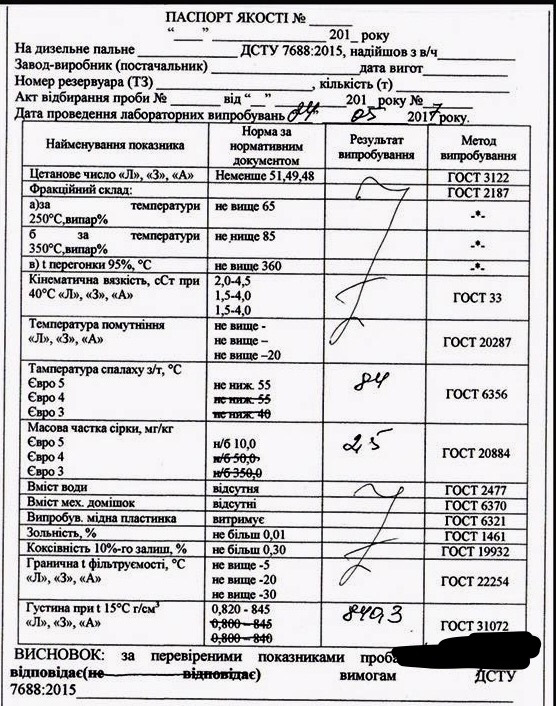 ПАСПОРТ ЯКОСТІ № ______
“____” ____________ 201_ року
На дизельне пальне ____________ ДСТУ 7688:2015, надійшов з в/ч
Завод-виробник (постачальник) ____________ дата вигот
Номер резервуара (ТЗ) ____________, кількість (т)
Акт відбирання проби № ______ від “__” ________ 201_ року №
Дата проведення лабораторних випробувань 24 05 2017 року.
Найменування показника | Норма за нормативним документом | Результат випробування | Метод випробування
Цетанове число «Л», «З», «А» | Неменше 51,49,48 | ГОСТ 3122
Фракційний склад: | ГОСТ 2187
а)за температури 250°С,випар% | не вище 65 | -*-
б за температури 350°С,випар% | не нище 85 | -*-
в) t перегонки 95%, °С | не вище 360 | -*-
Кінематична вязкість, сСт при 40°С «Л», «З», «А» | 2,0-4,5 1,5-4,0 1,5-4,0 | ГОСТ 33
Температура помутніння «Л», «З», «А» | не вище - не вище – не вище –20 | ГОСТ 20287
Тампература спалаху з/т, °С | 84 | ГОСТ 6356
Євро 5 | не ниж. 55
Євро 4 | не ниж. 55
Євро 3 | не ниж. 40
Масова частка сірки, мг/кг | 2,5 | ГОСТ 20884
Євро 5 | н/б 10,0
Євро 4 | н/б 50,0
Євро 3 | н/б 350,0
Вміст води | відсутня | ГОСТ 2477
Вміст мех. домішок | відсутні | ГОСТ 6370
Випробув. мідна пластинка | витримує | ГОСТ 6321
Зольність, % | не більш 0,01 | ГОСТ 1461
Коксівність 10%-го залиш, % | не більш 0,30 | ГОСТ 19932
Гранична t фільтруємості, °С «Л», «З», «А» | не вище -5 не вище -20 не вище -30 | ГОСТ 22254
Густина при t 15°С г/см³ «Л», «З», «А» | 0,820 - 845 0,800 – 845 0,800 – 840 | 840,3 | ГОСТ 31072
ВИСНОВОК: за перевіреними показниками проба
відповідає(не відповідає) вимогам ДСТУ
7688:2015